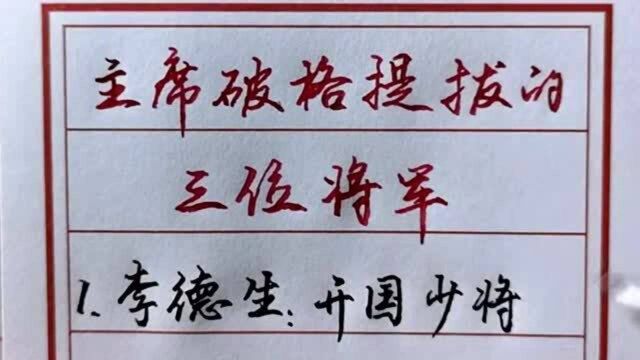 主席破格提拔的
三位将军
1.李德生:开国少将